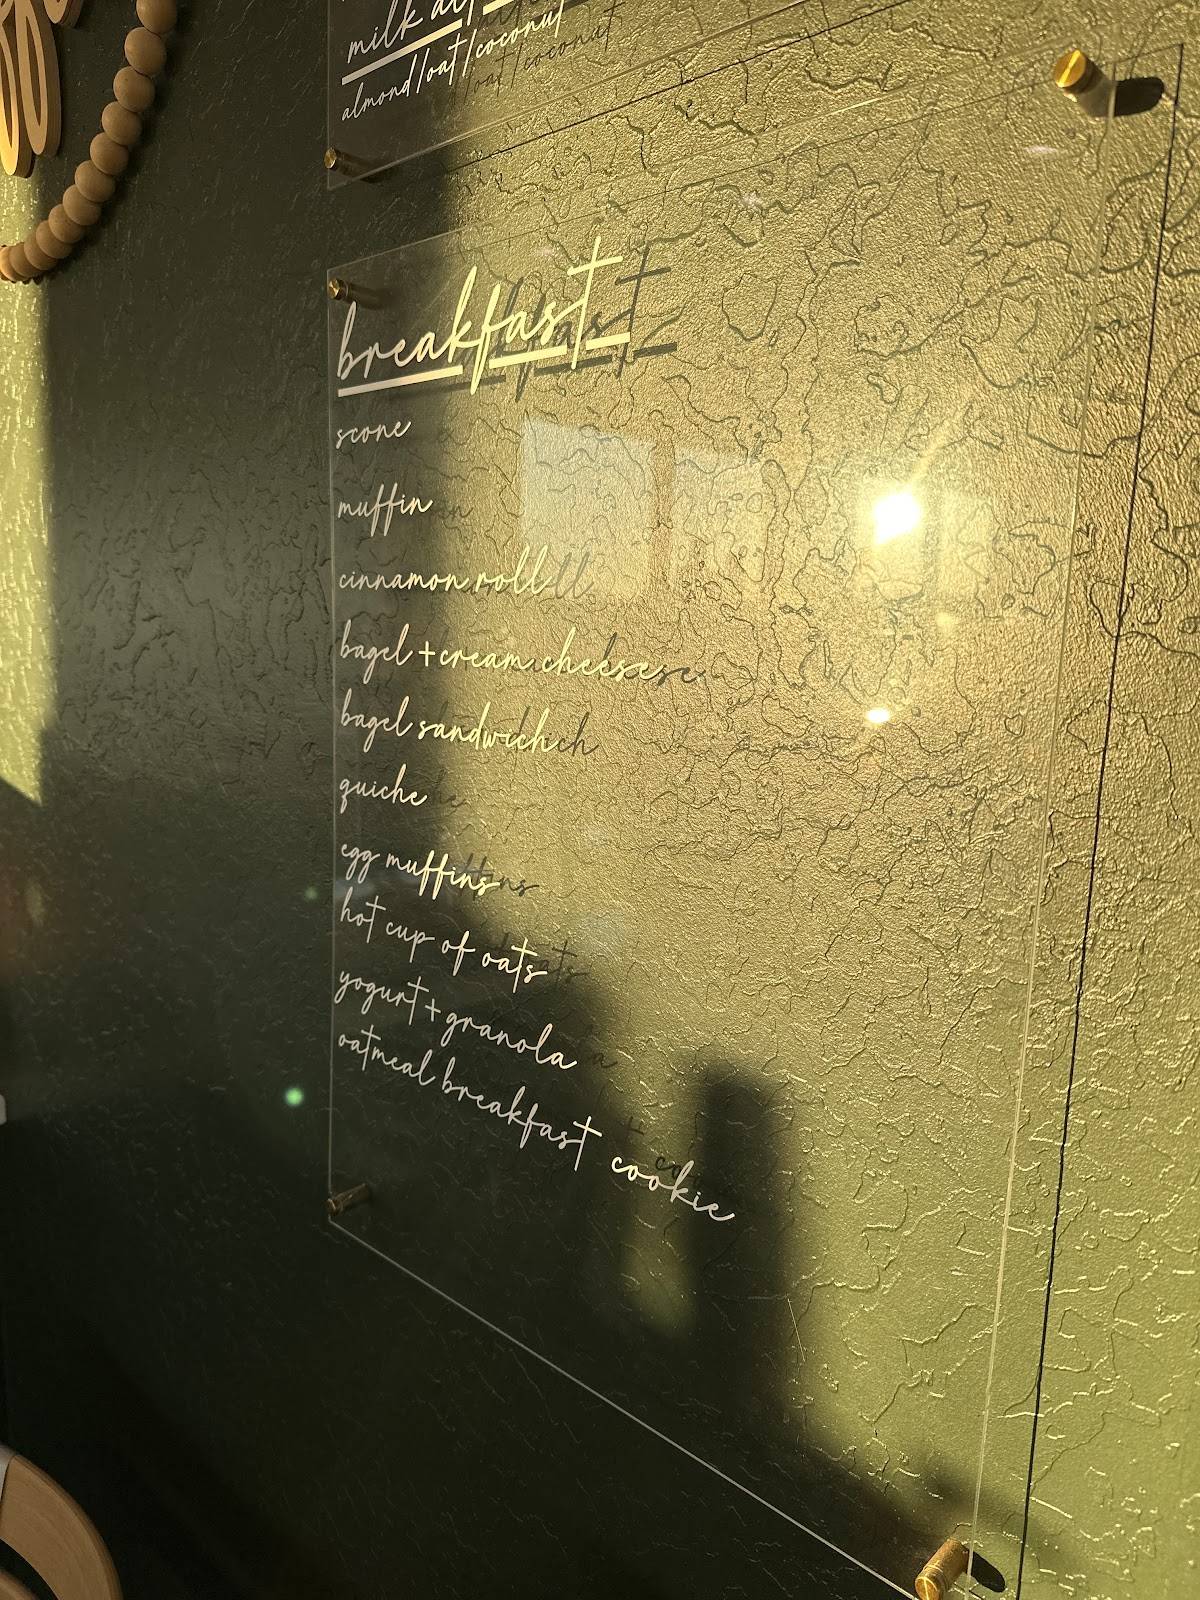 milk
almond/oat/coconut
breakfast
scone
muffin
cinnamon roll
bagel + cream cheese
bagel sandwich
quiche
egg muffins
hot cup of oats
yogurt + granola
oatmeal breakfast cookie